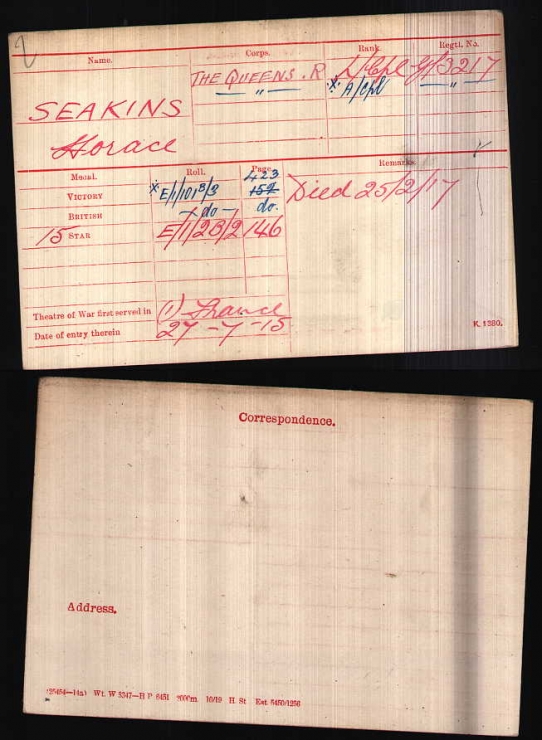 Name. Corps. Rank. Regtl. No.
SEAKINS THE QUEENS. R L/Cpl G/3217
Horace " x A/Cpl "
Medal. Roll. Page. Remarks.
423
VICTORY x E/1/101B/3 152 Died 25/2/17
BRITISH - do - do.
15 STAR E/1/2B/2 146
Theatre of War first served in (1) France
Date of entry therein 27-7-15
K. 1380.
Correspondence.
Address.
Wt. W 5347—H P 6451 10/19 H. St